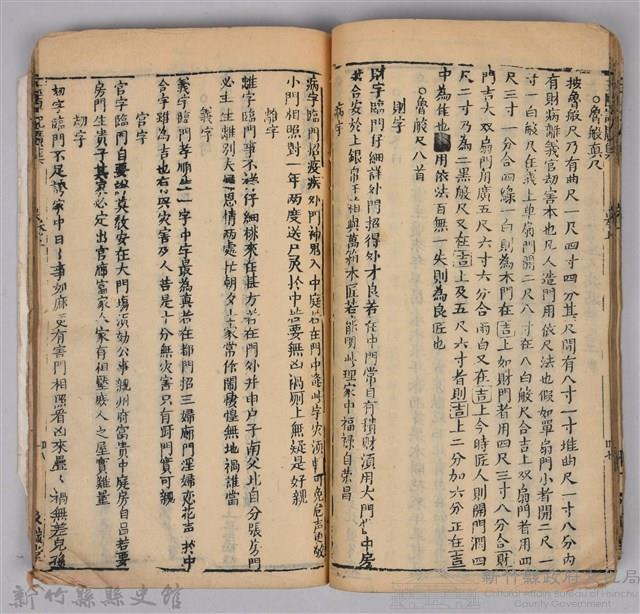 魯般真尺
按魯般尺乃有曲尺一尺四寸四分其尺間有八寸一寸堆曲尺一寸八分內
有財病離義官刼害本也凡人造門用依尺法也假如單扇門小者開二尺一
寸一白般尺在義上單扇門開二尺八寸在八白般尺合吉上双扇門者用四
尺三寸一分合四綠一白則為本門在吉上如財門者用四尺三寸八分合財
門吉大双扇門用廣五尺六寸六分合兩白又在吉上今時匠人則開門濶四
尺二寸乃為二黑般尺又在吉上及五尺六寸者則吉上二分加六分正在吉
中為佳也皆用依法百無一失則為良匠也
魯般尺八首
財字
財字臨門仔細詳外門招得外才良若在中門常自有積財須用大門當中房
若合安於上銀帛千箱與萬箱木匠若能明此理家中福祿自荣昌
病字
病字臨門招疫疾外門神鬼入中庭若在門中逢此字灾須輕可免危声更被
小門相照對一年兩度送尸灵於中若要無凶禍厠上無疑是好親
離字
離字臨門事不祥仔細排來在甚方若在外門并中户子南父北自分張房門
必主生離別夫婦恩情两處忙朝夕主家常作鬧悽惶無地禍誰當
義字
義字臨門孝順生一字中字最為真若在都門招三婦廊門淫婦恋花声於中
合字雖為吉也有兴灾害及人若是十分無灾害只有厨門實可親
官字
官字臨門自要詳莫教安在大門塲須妨公事親州府富貴中庭房自昌若要
房門生貴子其家必定出官廊富家人家有相壓庻人之屋實難量
刼字
刼字臨門不足誇家中日日事如麻更有害門相照看凶來疊疊禍無差兒孫
新竹縣縣史館
新竹縣政府文化局
Cultural Affairs Bureau of Hsinchu
County Government